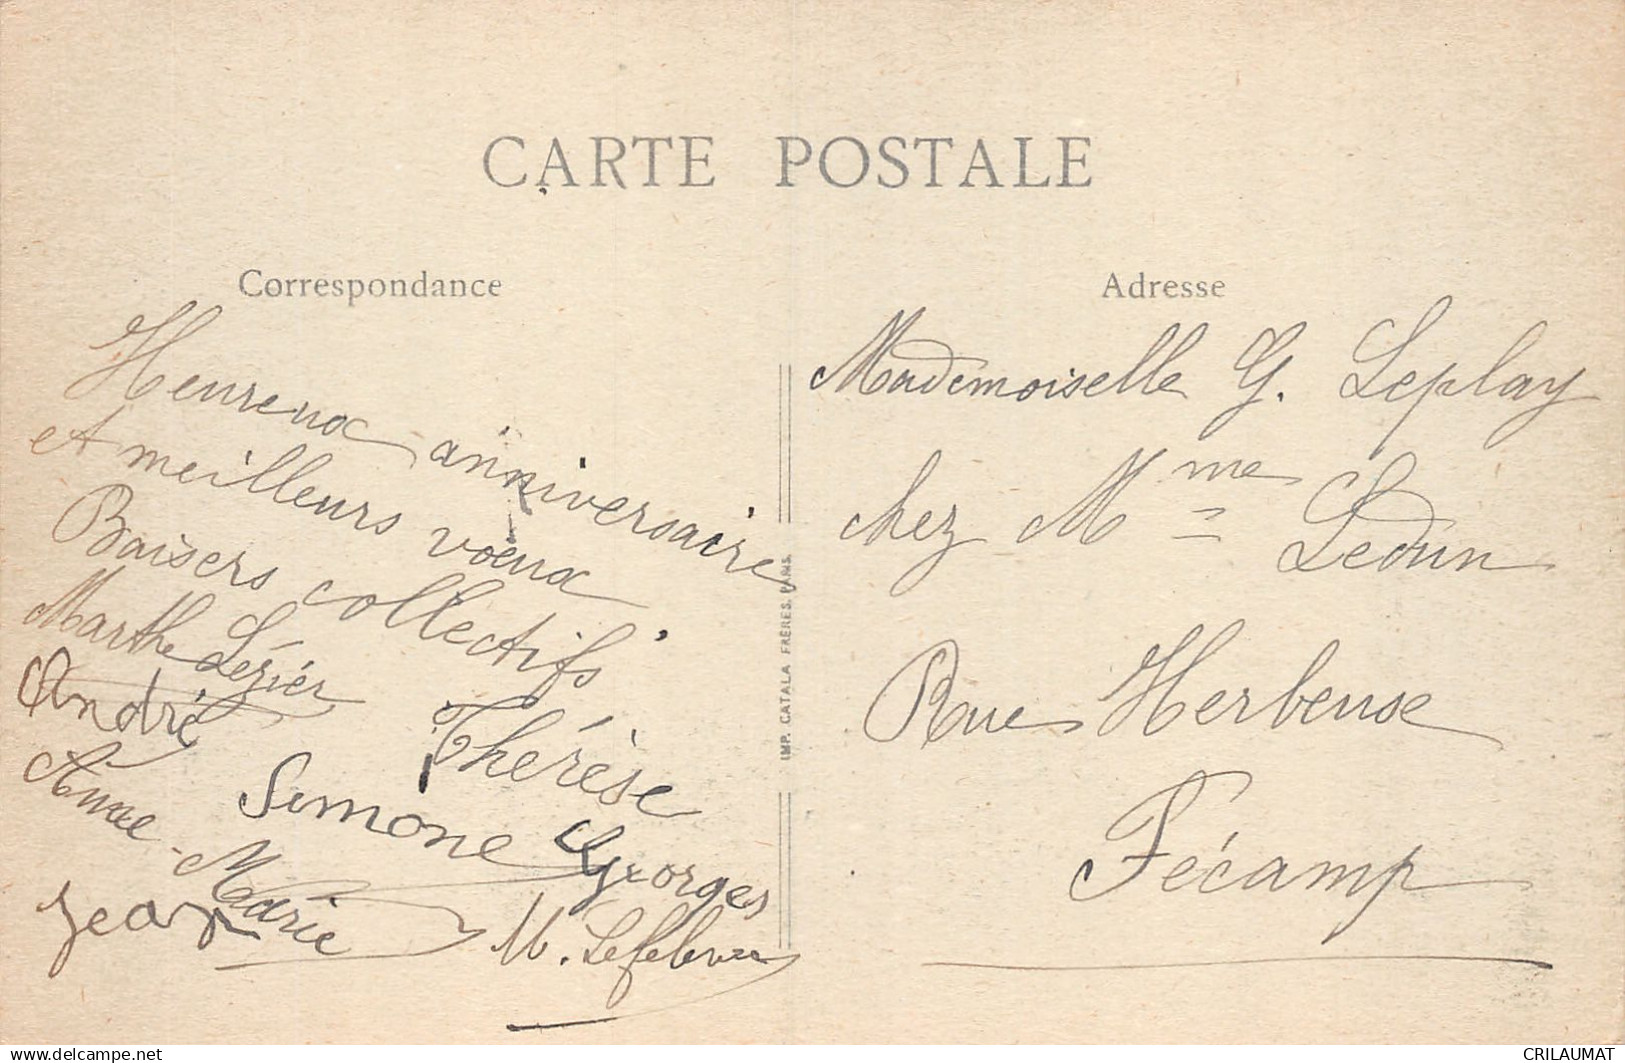 CARTE POSTALE
Correspondance
Heureux anniversaire
et meilleurs vœux
Baisers collectifs
Marthe Lézier
André
Thérèse
Anne-Marie
Simone
Georges
Jean
M. Lefebvre
IMP. CATALA FRÈRES, PARIS
Adresse
Mademoiselle G. Leplay
chez Mme Ledun
Rue Herbeuse
Fécamp
www.delcampe.net
CRILAUMAT